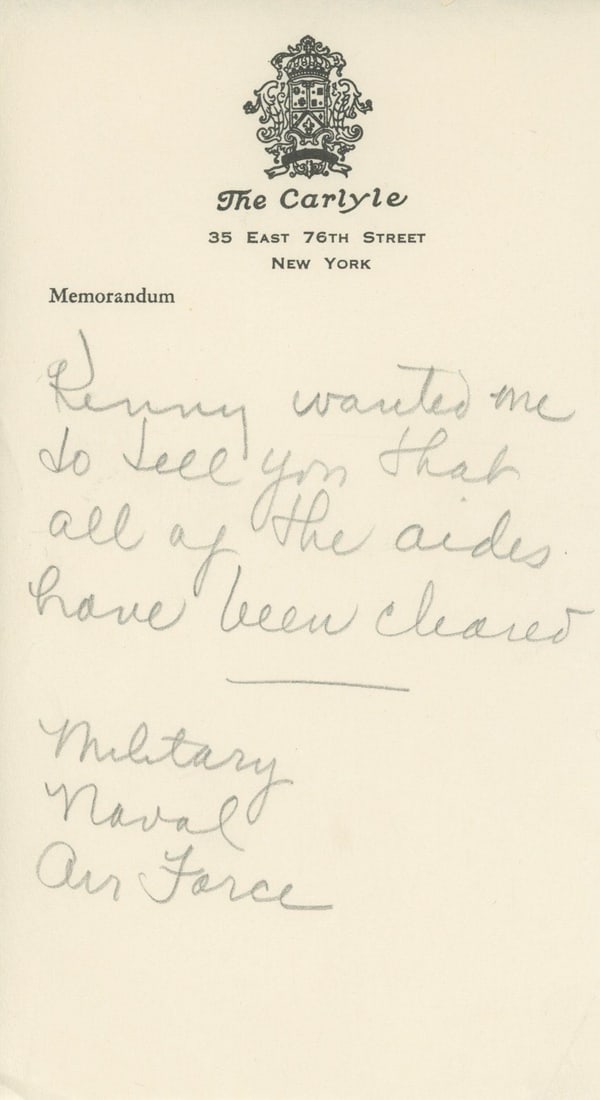 The Carlyle
35 East 76th Street
New York
Memorandum
Kenny wanted me
to tell you that
all of the aides
have been cleared
Military
Naval
Air Force